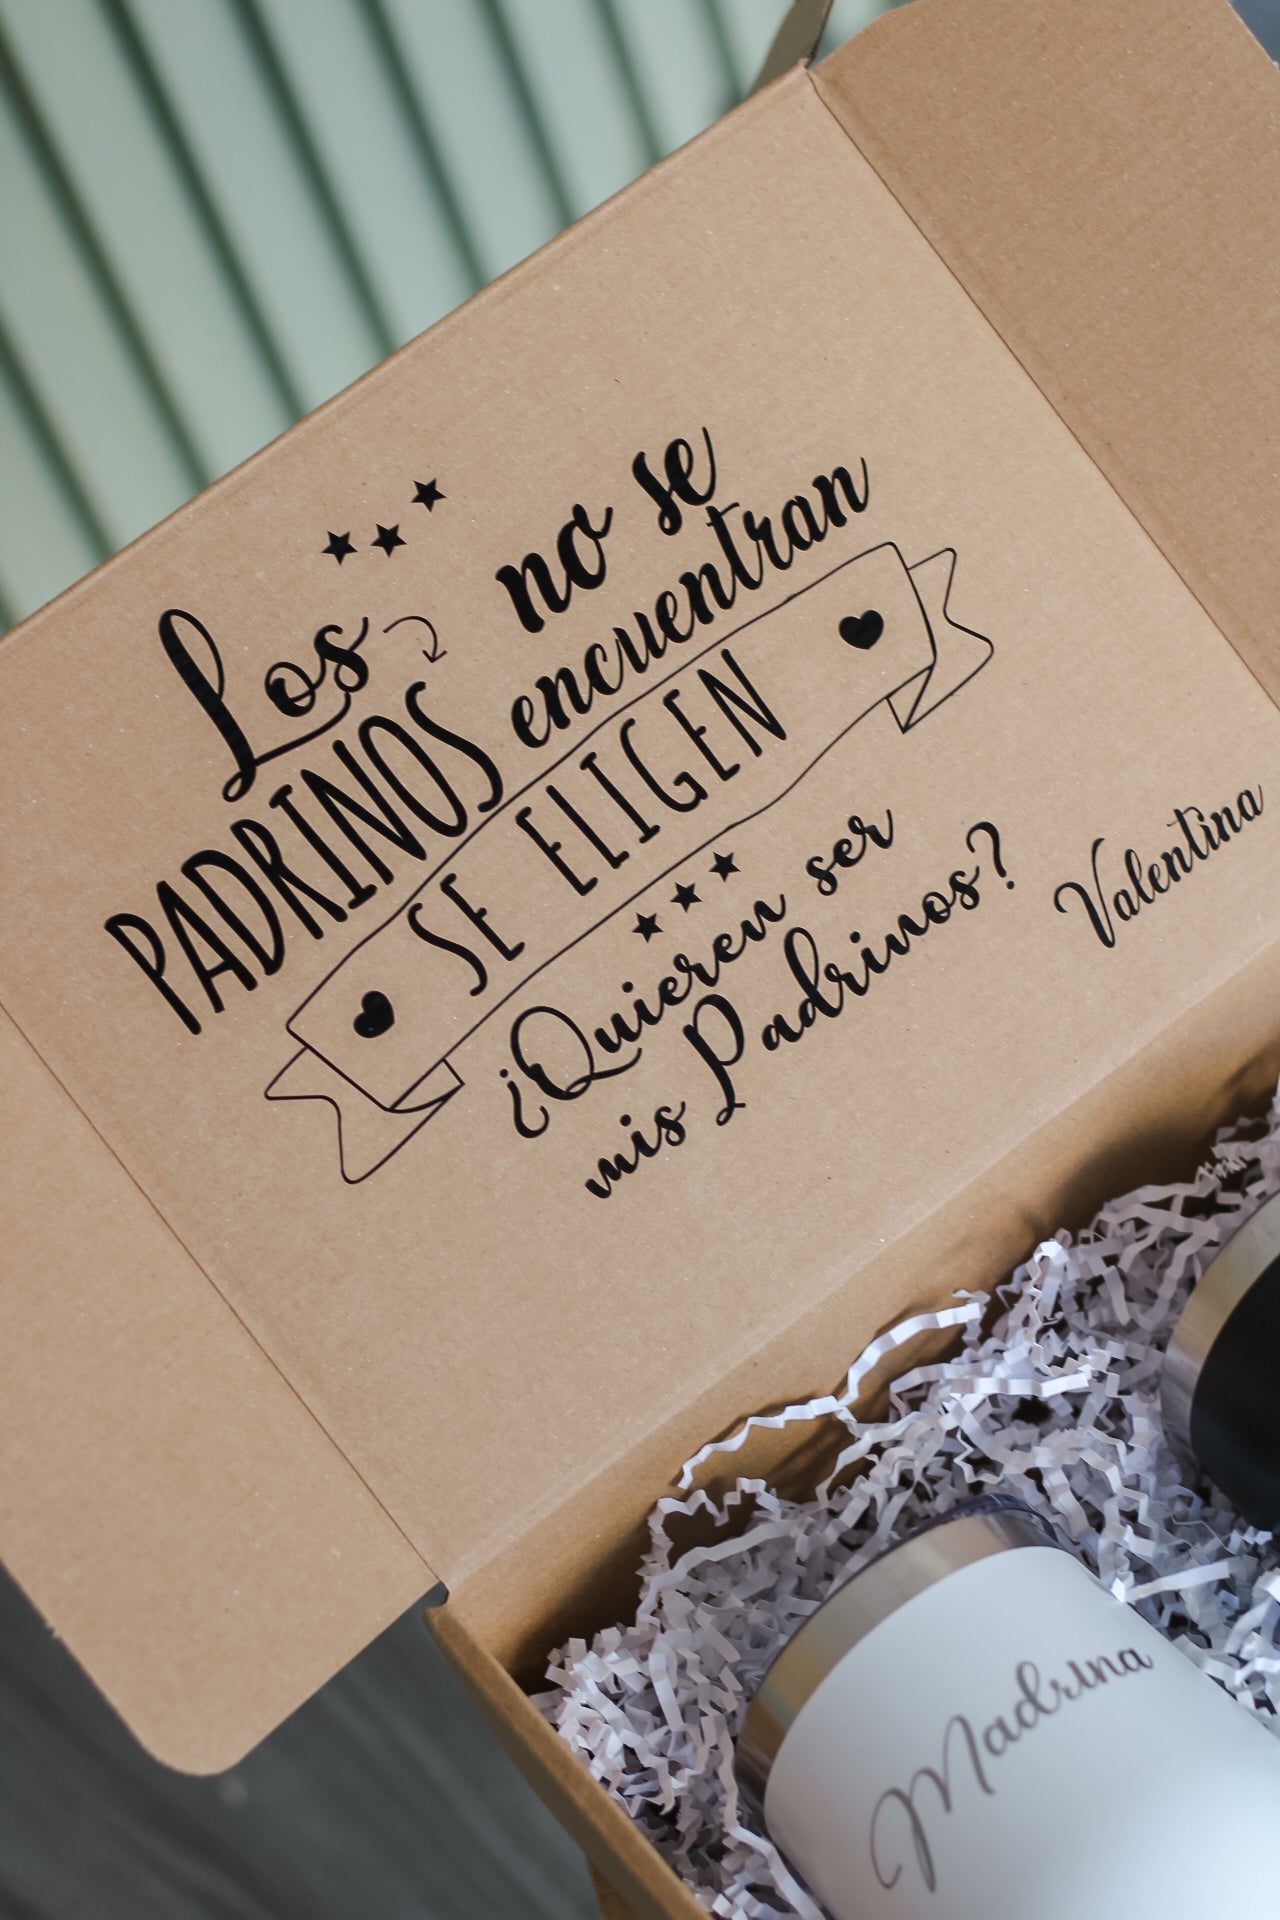 Los
PADRINOS
no se
encuentran
SE ELIGEN
¿Quieren ser
mis Padrinos?
Valentina
Madrina